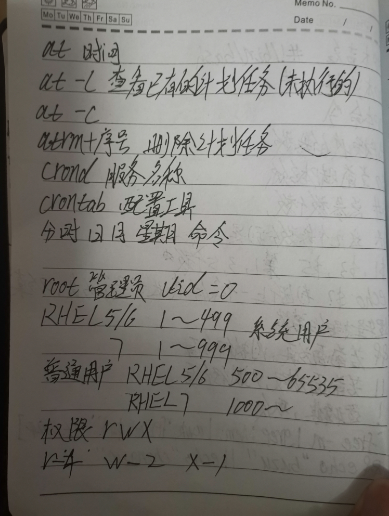 Memo No.
Mo Tu We Th Fr Sa Su
Date / /
at 时间
at -l 查看已有的计划任务(未执行的)
at -c
atrm+序号 删除计划任务
crond 服务名称
crontab 配置工具
分时日月星期 命令
root 管理员 uid=0
RHEL5/6 1~499 系统用户
7 1~999
普通用户 RHEL5/6 500~65535
RHEL7 1000~
权限 rwx
r-4 w-2 x-1